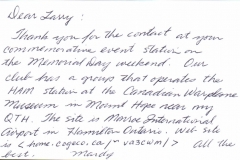 Dear Larry:
Thank you for the contact at your
commemorative event station on
the Memorial Day weekend. Our
club has a group that operates the
HAM station at the Canadian Warplane
Museum in Mount Hope near my
QTH. The site is Munroe International
Airport in Hamilton Ontario. Web site
is <home.cogeco.ca/~va3cwm/> All the
best. Mandy